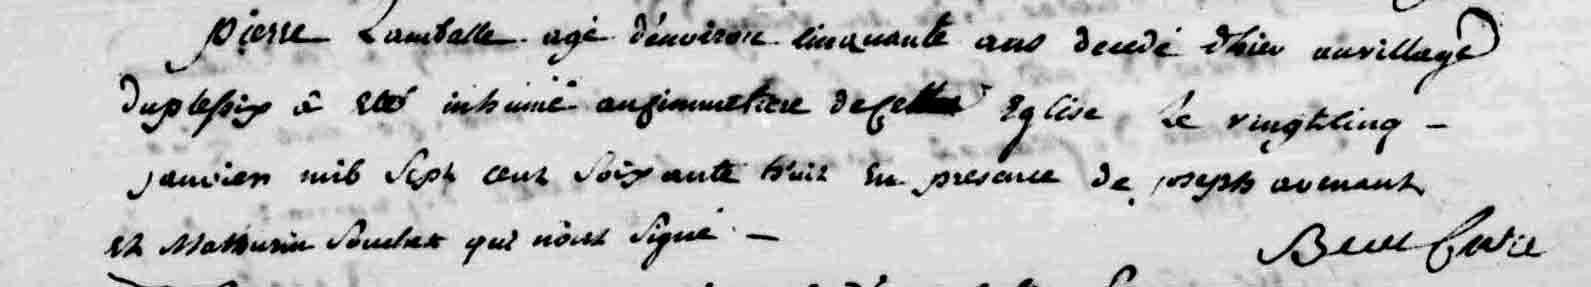 pierre Lamballe agé d'environ cinquante ans decedé d'hier au village
duplessix à eté inhumé au simmetiere de cette Eglise Le vingt cinq -
janvier mil sept cent soixante huit En presence de joseph avenant
et Mathurin qui n'ont signé. -
Curé